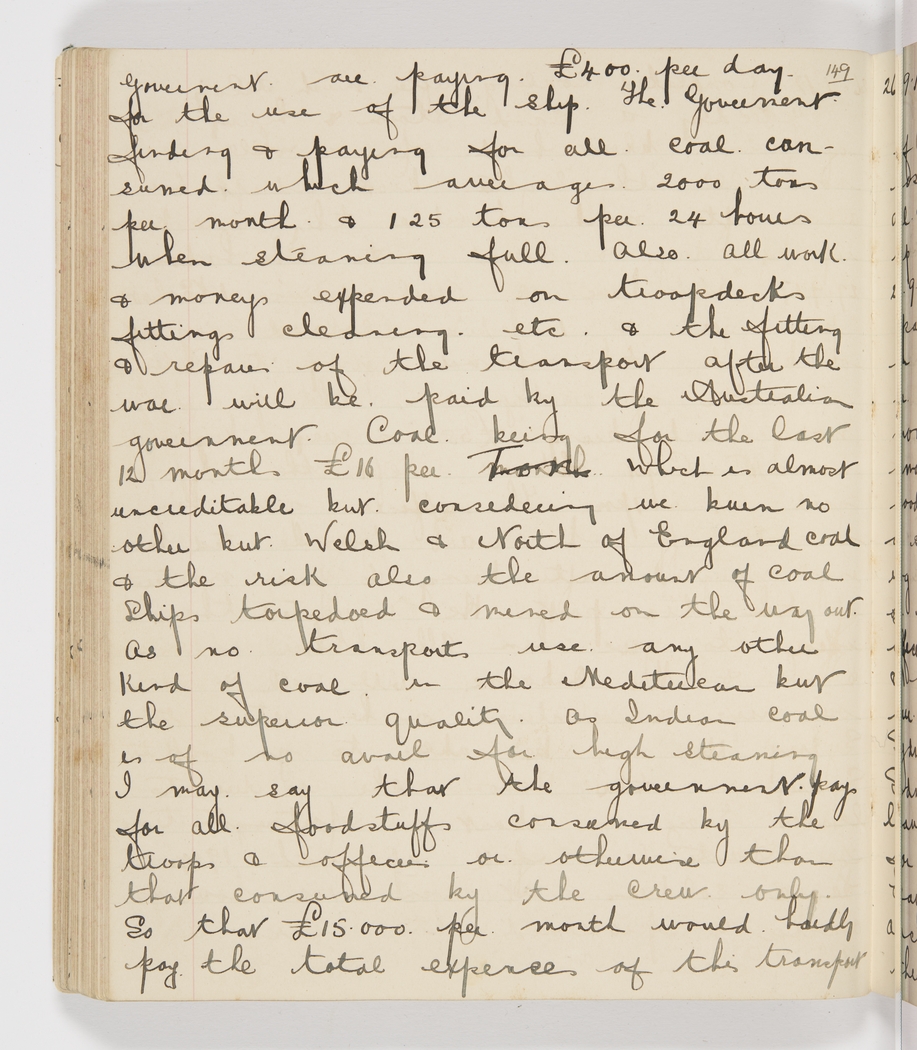 149
goverment. are paying. £400. per day.
for the use of the ship. The. Goverment.
finding & paying for all. coal. con-
sumed. which averages. 2000 tons
per. month. & 125 tons per. 24 hours
when steaming full. Also. all work.
& moneys expended on troopdecks
fittings cleaning. etc. & the fitting
& repairs of the transport after the
war. will be. paid by the Australian
government. Coal. being for the last
12 months £16 per. which is almost
uncreditable but. considering we burn no
other but. Welsh & North of England coal
& the risk also the amount of coal
Ships torpedoed & mined on the way out.
As no. transports use. any other
Kind of coal. in the but
the superior. quality. as Indian coal
is of no avail for high steaming
I may. say that the government. pays
for all. foodstuffs consumed by the
troops & officers. or. otherwise than
that consumed by the crew. only.
So that £15.000. per. month would. hardly
pay. the total expences of this transport